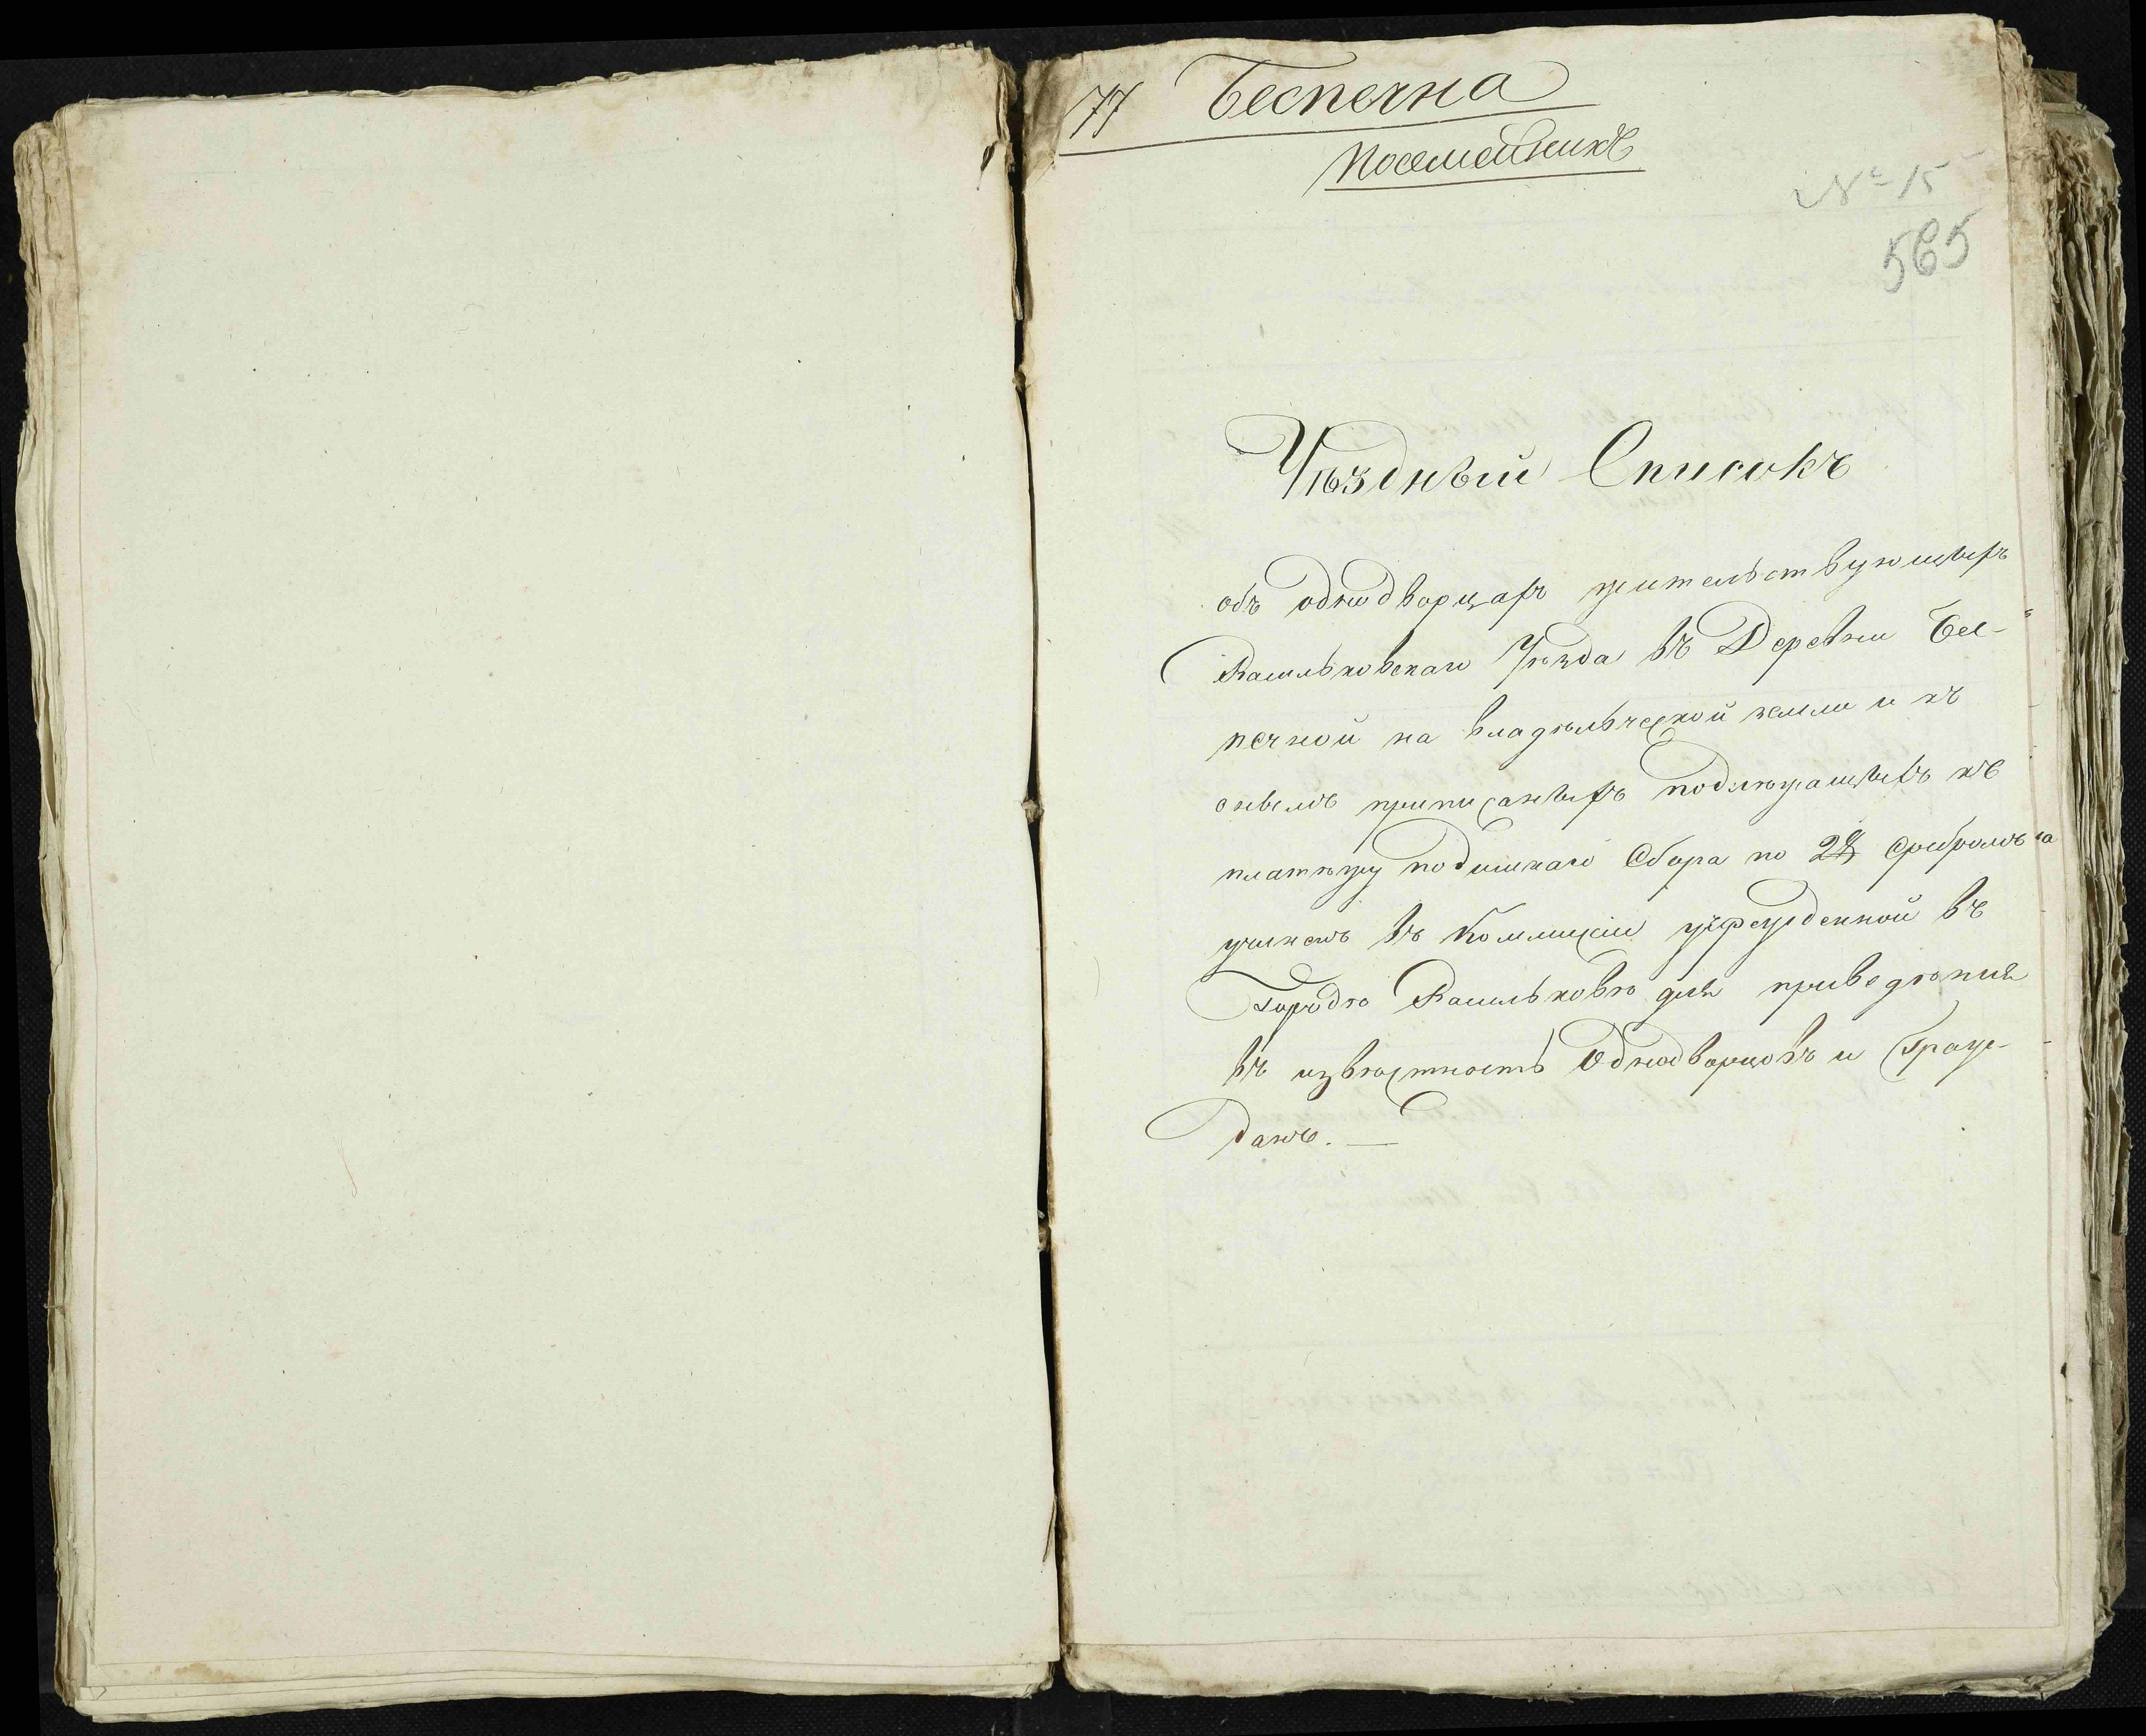 77 Беспечна
посемейникъ
№ 15
565
Уѣздный Списокъ
объ однодворцахъ жительствующихъ
Васильковскаго Уѣзда въ Деревни Бес-
печной на владѣльческой земли и къ
оной приписаныхъ подлежащихъ къ
платежу подымнаго Сбора по 2 сребромъ а
учиненъ въ Коммиціи учрежденной въ
Городѣ Васильковѣ для приведѣнія
въ извѣстность Однодворцовъ и Граж-
данъ. —